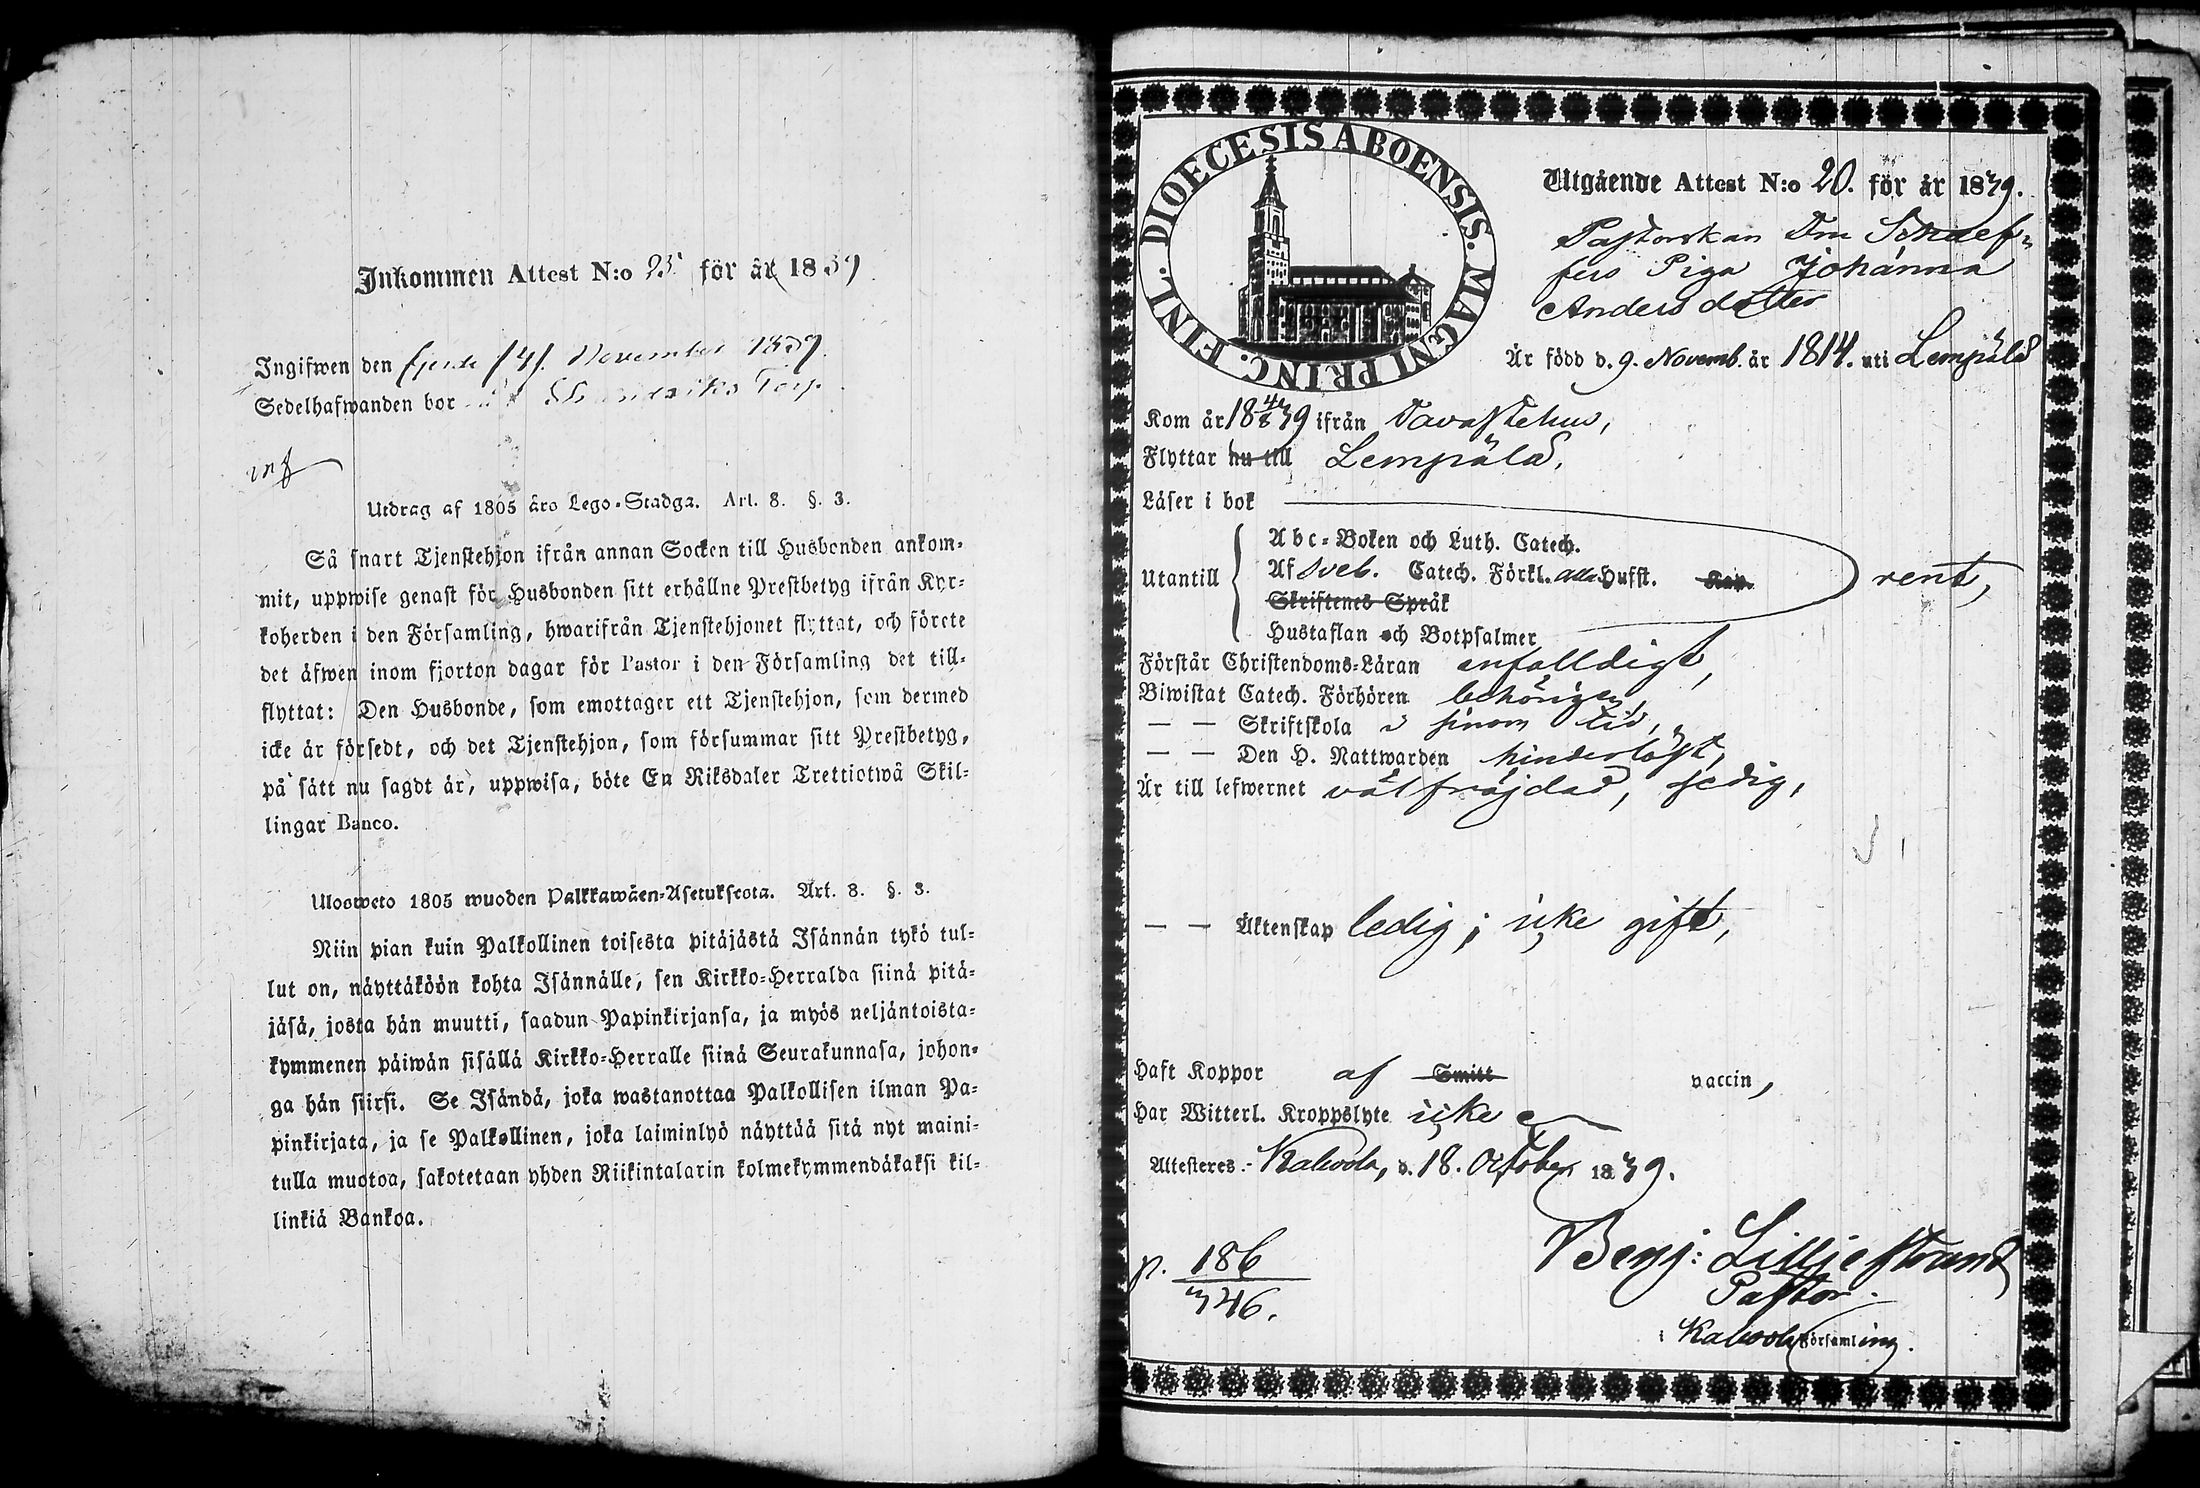 Inkommen Attest N:o 25 för år 1839
Ingifwen den fjerde /4/. November 1839.
Sedelhafwanden bor Torp.
Utdrag af 1805 års Lego-Stadga. Art. 8. §. 3.
Så snart Tjenstehjon ifrån annan Socken till Husbonden ankom-
mit, uppwise genast för Husbonden sitt erhållne Prestbetyg ifrån Kyr-
koherden i den Församling, hwarifrån Tjenstehjonet flyttat, och förete
det äfwen inom fjorton dagar för Pastor i den Församling det till-
flyttat: Den Husbonde, som emottager ett Tjenstehjon, som dermed
icke är försedt, och det Tjenstehjon, som försummar sitt Prestbetyg,
på sätt nu sagdt är, uppwisa, böte En Riksdaler Trettiotwå Skil-
lingar Banco.
Ulosweto 1805 wuoden Palkkawäen-Asetuksesta. Art. 8. §. 3.
Niin pian kuin Palkollinen toisesta pitäjästä Isännän tykö tul-
lut on, näyttäköön kohta Isännälle, sen Kirkko-Herralda siinä pitä-
jäsä, josta hän muutti, saadun Papinkirjansa, ja myös neljäntoista-
kymmenen päiwän sisällä Kirkko-Herralle siinä Seurakunnasa, johon-
ga hän siirsi. Se Isändä, joka wastanottaa Palkollisen ilman Pa-
pinkirjata, ja se Palkollinen, joka laiminlyö näyttää sitä nyt maini-
tulla muotoa, sakotetaan yhden Riikintalarin kolmekymmendäkaksi kil-
linkiä Bankoa.
DIOECESIS ABOENSIS. MAGNI PRINC. FINL.
Utgående Attest N:o 20. för år 1839.
Pastorskan Schaef-
fers Piga Johanna
Andersdotter
Är född d. 9. Novemb. år 1814. uti Lempälä
Kom år 18 4/8 39 ifrån Tavastehus,
Flyttar nu till Lempälä.
Läser i bok
Abc-Boken och Luth. Catech.
Utantill Af Sveb. Catech. Förkl. alla Hufst. Kap. rent,
Skriftenes Språk
Hustaflan och Botpsalmer
Förstår Christendoms-Läran enfalldigt,
Biwistat Catech. Förhören behörigen,
— — Skriftskola i sinom tid,
— — Den H. Nattwarden hinderlöst,
Är till lefwernet välfräjdad, sedig,
— — Äktenskap ledig; icke gift,
Haft Koppor af Smitt vaccin,
Har Witterl. Kroppslyte icke
Attesteres.- Kalvola, d. 18. October 1839.
Benj: Lilljestrand
Pastor.
i Kalvola Församling.
p. 186
346.